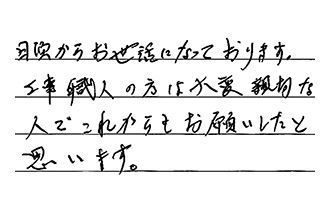 日頃からお世話になっております。
工事職人の方は大変親切な
人でこれからもお願いしたと
思います。